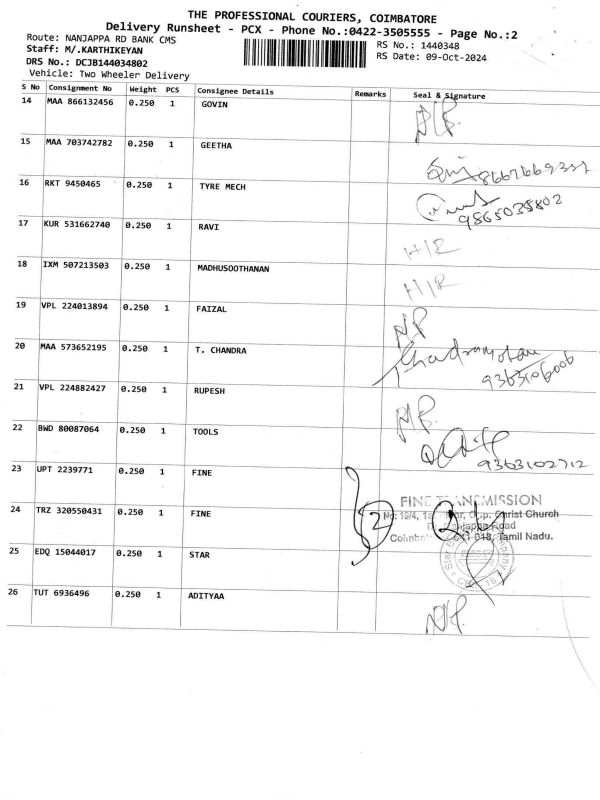 THE PROFESSIONAL COURIERS, COIMBATORE
Delivery Runsheet - PCX - Phone No.:0422-3505555 - Page No.:2
Route: NANJAPPA RD BANK CMS
RS No.: 1440348
Staff: M/.KARTHIKEYAN
RS Date: 09-Oct-2024
DRS No.: DCJB144034802
Vehicle: Two Wheeler Delivery
S No Consignment No Weight PCS Consignee Details Remarks Seal & Signature
14 MAA 866132456 0.250 1 GOVIN
15 MAA 703742782 0.250 1 GEETHA
16 RKT 9450465 0.250 1 TYRE MECH 9865035802
17 KUR 531662740 0.250 1 RAVI H/R
18 IXM 507213503 0.250 1 MADHUSOOTHANAN H/R
19 VPL 224013894 0.250 1 FAIZAL
20 MAA 573652195 0.250 1 T. CHANDRA
21 VPL 224882427 0.250 1 RUPESH
22 BWD 80087064 0.250 1 TOOLS 9363102712
23 UPT 2239771 0.250 1 FINE
24 TRZ 320550431 0.250 1 FINE 2
FINE TRANSMISSION
Christ Church
Road
Tamil Nadu.
25 EDQ 15044017 0.250 1 STAR
26 TUT 6936496 0.250 1 ADITYAA